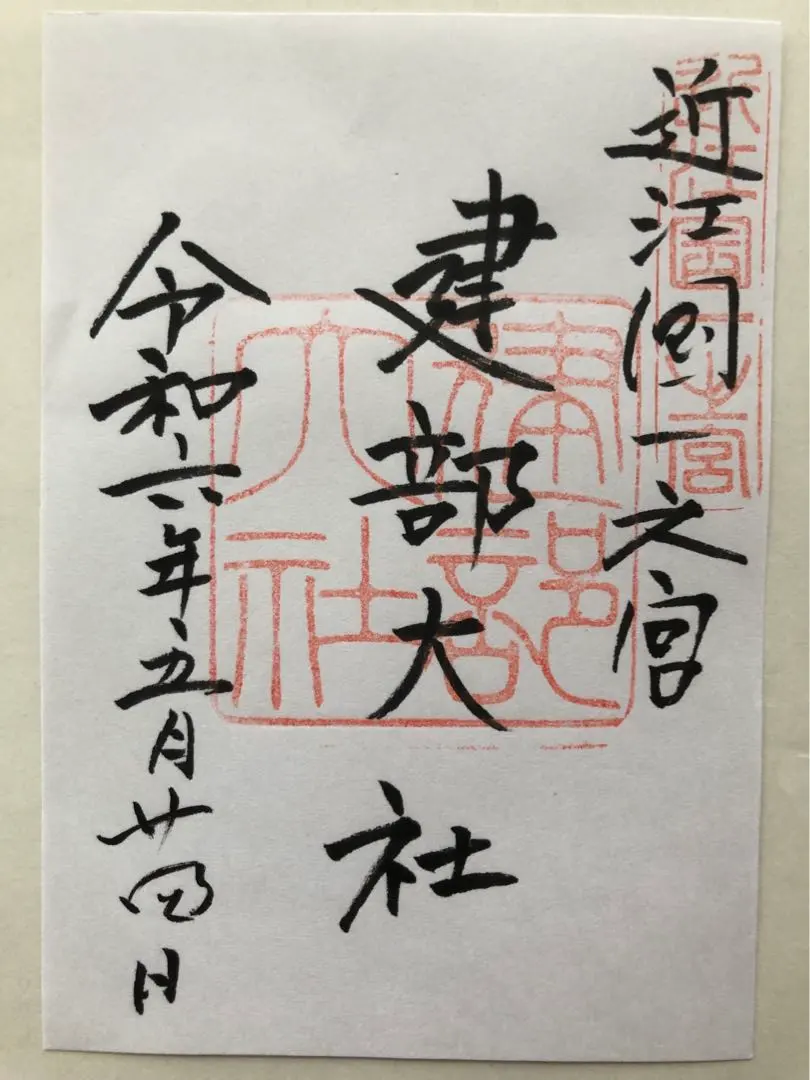 近江國一之宮
建部大社
令和六年五月廿四日
近江國一之宮
建部大社